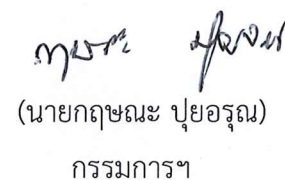 (นายกฤษณะ ปุยอรุณ)
กรรมการฯ